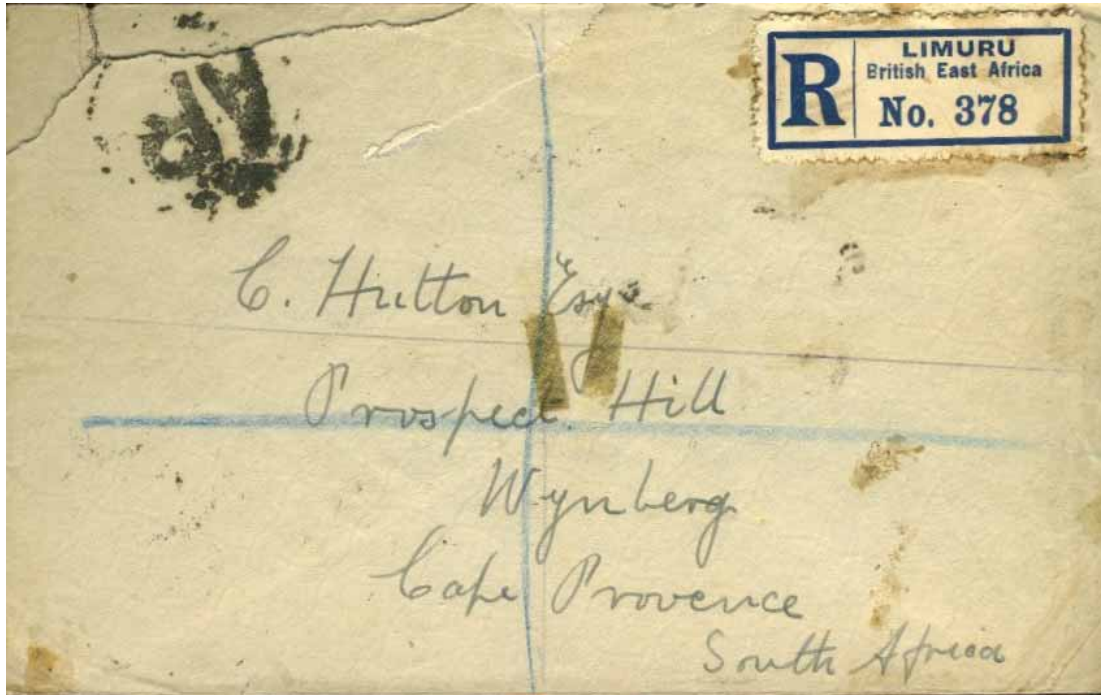 R
LIMURU
British East Africa
No. 378
C. Hutton Esq
Prospect Hill
Wynberg
Cape Provence
South Africa